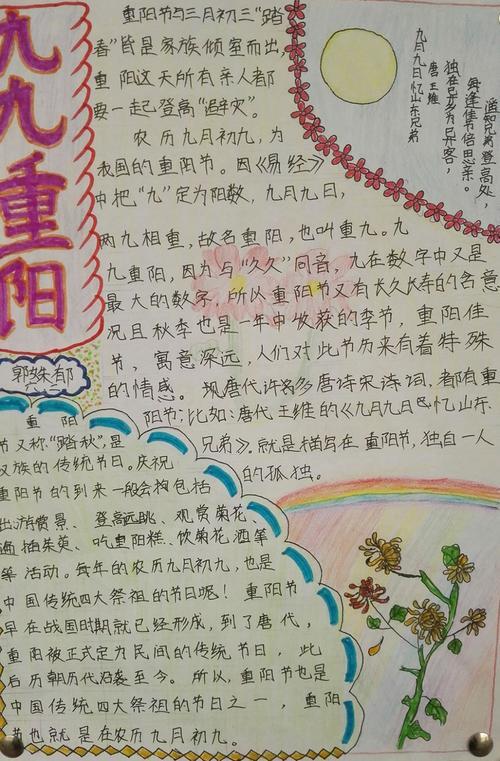 九九重阳
郭姝郁
重阳节与三月初三“踏
春”皆是家族倾室而出,
重阳这天所有亲人都
要一起登高“避灾”。
农历九月初九,为
我国的重阳节。因《易经》
中把“九”定为阳数,九月九日,
两九相重,故名重阳,也叫重九。九
九重阳,因为与“久久”同音,九在数字中又是
最大的数字,所以重阳节又有长久长寿的含意
况且秋季也是一年中收获的季节,重阳佳
节,寓意深远,人们对此节历来有着特殊
的情感。现唐代许多唐诗宋诗词,都有重
阳节;比如:唐代王维的《九月九日忆山东
兄弟》。就是描写在重阳节,独自一人
的孤独。
九月九日忆山东兄弟
唐 王维
独在异乡为异客,
每逢佳节倍思亲。
遥知兄弟登高处,
重阳
节又称“踏秋”,是
汉族的传统节日。庆祝
重阳节的到来一般会包括
出游赏景、登高远眺、观赏菊花、
遍插茱萸、吃重阳糕、饮菊花酒等
等活动。每年的农历九月初九,也是
中国传统四大祭祖的节日呢!重阳节
早在战国时期就已经形成,到了唐代,
重阳被正式定为民间的传统节日,此
后历朝历代沿袭至今。所以,重阳节也是
中国传统四大祭祖的节日之一,重阳
节也就是在农历九月初九。